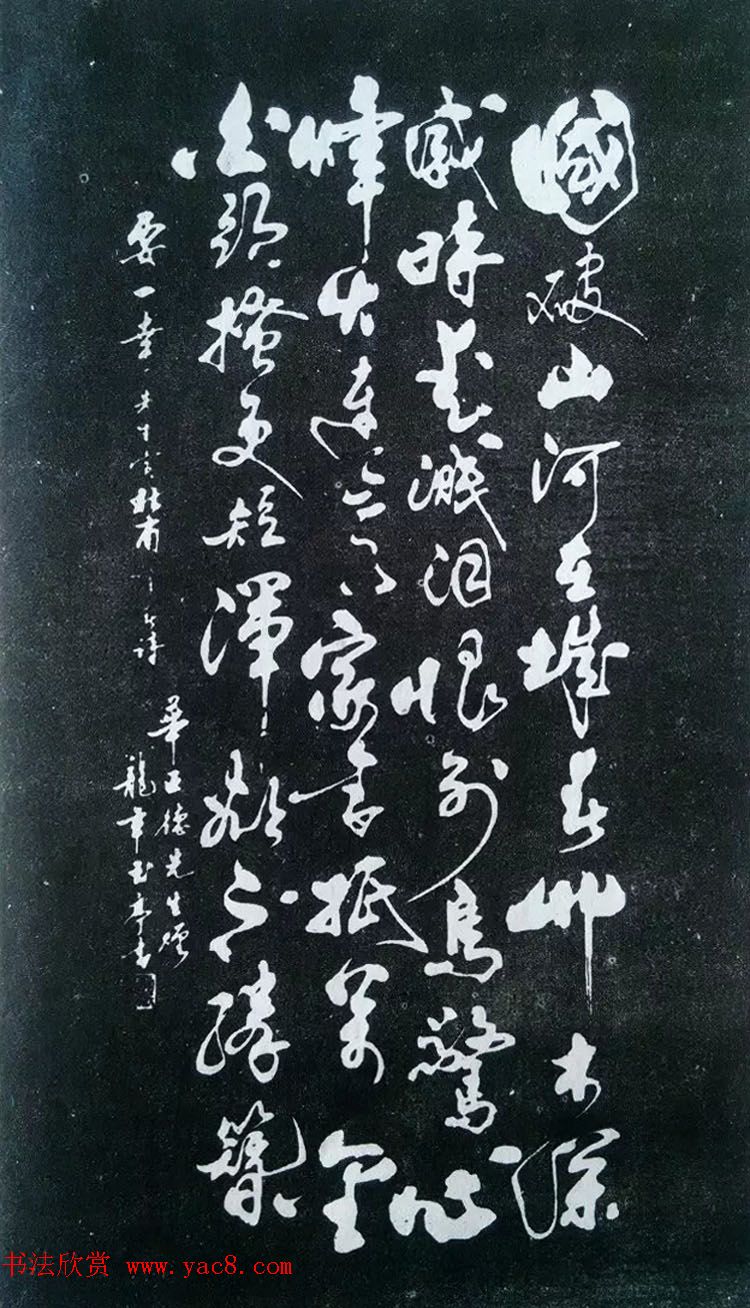 國破山河在城春艸木深
感時花濺泪恨別鳥驚心
烽火連三月家書抵萬金
白頭搔更短渾欲不勝簪
先生 杜甫 詩
華正德先生
龍年玉亭書
书法欣赏 www.yac8.com